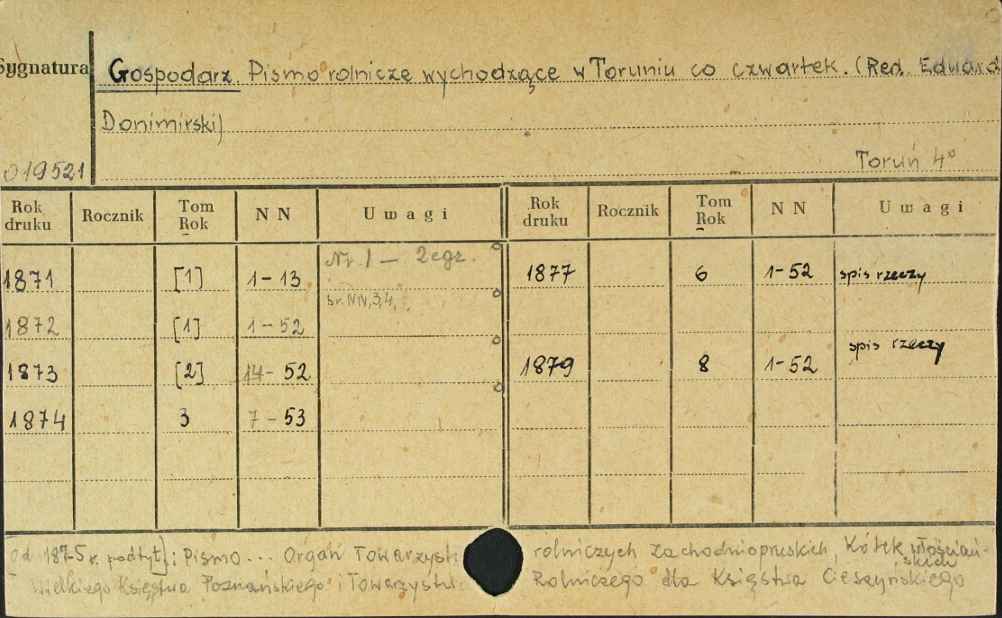 Sygnatura
Gospodarz. Pismo rolnicze wychodzące w Toruniu co czwartek. (Red. Eduard
Donimirski)
019521
Toruń 4°
Rok druku Rocznik Tom Rok NN Uwagi Rok druku Rocznik Tom Rok NN Uwagi
1871 [1] 1-13 Nr. 1 - 2 egz. 1877 6 1-52 spis rzeczy
br. NN, 3, 4,
1872 [1] 1-52
1873 [2] 14-52 1879 8 1-52 spis rzeczy
1874 3 7-53
Od 1875 r. podtyt]: Pismo... Organ Towarzyst rolniczych zachodniopruskich, Kółek włościań-
skich
Wielkiego Księstwa Poznańskiego i Towarzystw Rolniczego dla Księstwa Cieszyńskiego